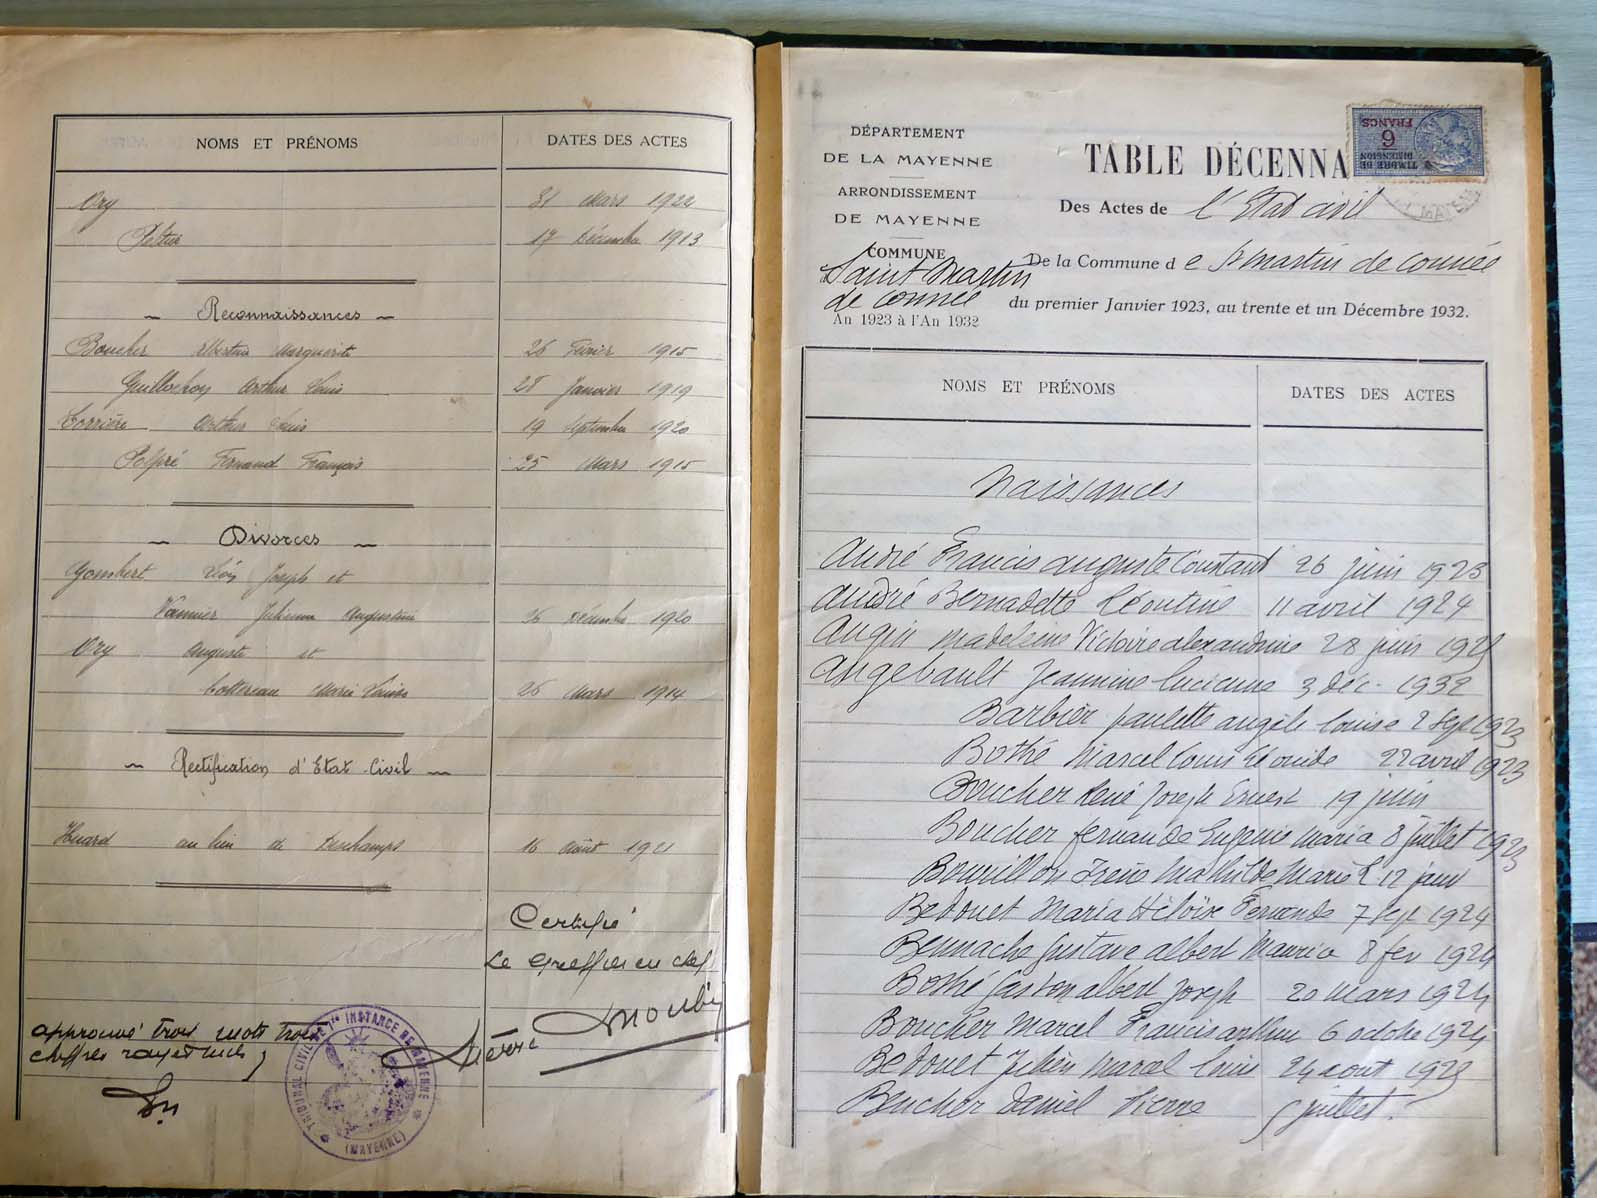 NOMS ET PRÉNOMS DATES DES ACTES
Ory 31 Mars 1922
17 Décembre 1913
~ Reconnaissances ~
Boucher Albertine Marguerite 26 Février 1915
Arthur Louis 28 Janvier 1919
Arthur Louis 19 Septembre 1920
Fernand François 25 Mars 1915
~ Divorces ~
Gombert Léon Joseph et
Vannier Augustine 26 Décembre 1920
Ory Auguste et
Cottereau Marie Louise 26 Mars 1914
~ Rectification d'Etat Civil ~
Huard au lieu de Deschamps 16 Août 1921
Certifié
Le Greffier en chef
approuvé trois mots trois
chiffres rayés nuls
TRIBUNAL CIVIL DE 1re INSTANCE DE MAYENNE
(MAYENNE)
DÉPARTEMENT
DE LA MAYENNE
ARRONDISSEMENT
DE MAYENNE
COMMUNE
Saint Martin
de connée
An 1923 à l'An 1932
TABLE DÉCENNA
TIMBRE DE
DIMENSION
6
FRANCS
Des Actes de l'Etat civil
De la Commune d e St martin de connée
du premier Janvier 1923, au trente et un Décembre 1932.
NOMS ET PRÉNOMS DATES DES ACTES
Naissances
André Francis auguste Constant 26 juin 1923
André Bernadette Léontine 11 avril 1924
Angin madeleine Victoire alexandrine 28 juin 1923
Angebault Jeannine lucienne 3 déc. 1932
Barbier paulette angèle louise 2 Sept 1923
Bothé Marcel Louis 22 avril 1923
Boucher René Joseph Ernest 19 juin
Boucher fernande Eugenie maria 8 juillet 1923
Bourillon Irène Mathilde Marie L 12 janv
Bedouet Maria Héloïse Fernande 7 sept 1924
Gustave albert Maurice 8 fev 1924
Bothé Gaston albert Joseph 20 mars 1924
Boucher Marcel Francis arthur 6 octobre 1924
Bedouet Julien Marcel Louis 24 aout 1923
Boucher Daniel Pierre 5 juillet.